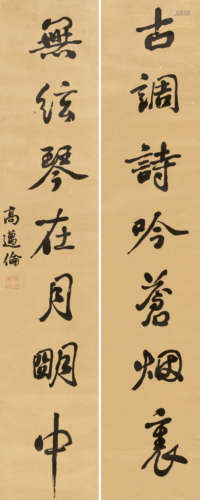 古調詩吟蒼烟裏
無絃琴在月明中
高邁倫